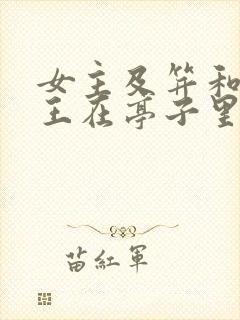 女主及笄和
王在亭子里
苗紅軍